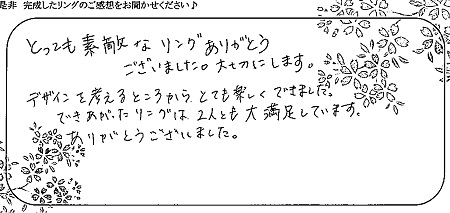 是非 完成したリングのご感想をお聞かせください♪
とっても素敵なリングありがとう
ございました。大切にします。
デザインを考えるところから、とても楽しくできました。
できあがったリングは2人とも大満足しています。
ありがとうございました。